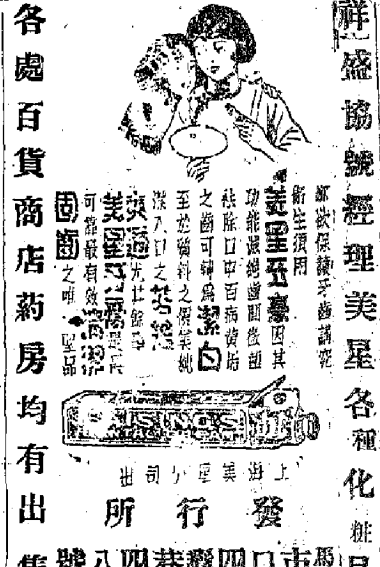 祥盛協號經理美星各種化粧
欲保護牙齒講究
衛生須用
美星牙膏因其
功能滅絕齒間微菌
祛除口中百病黃垢
之齒可轉為潔白
至於質料之優美純
潔入口之
爽適尤其餘事
美星牙膏是
可靠最有效
固齒之唯一聖品
上海美星公司出
發行所
市口四巷四八號
各處百貨商店药房均有出售